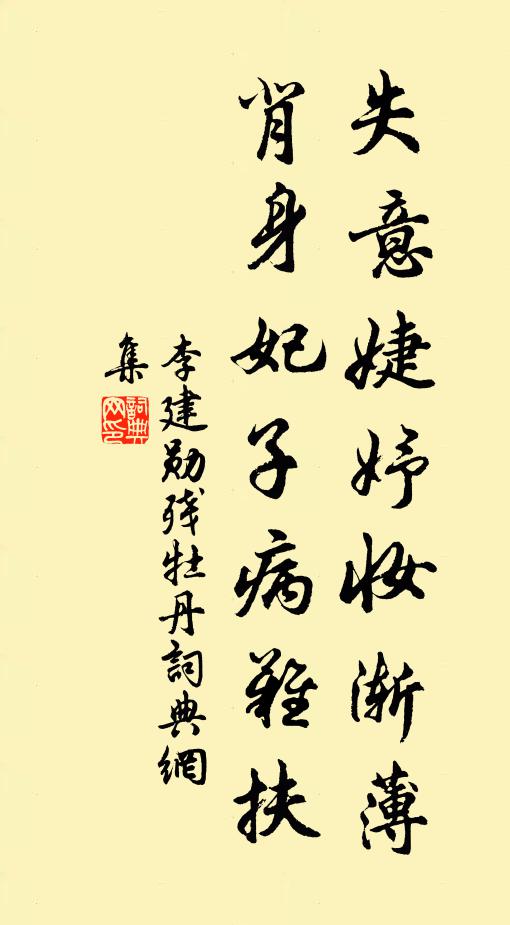 失意婕妤妆渐薄
背身妃子病難扶
李建勋残牡丹詞典網
集
詞典
网印